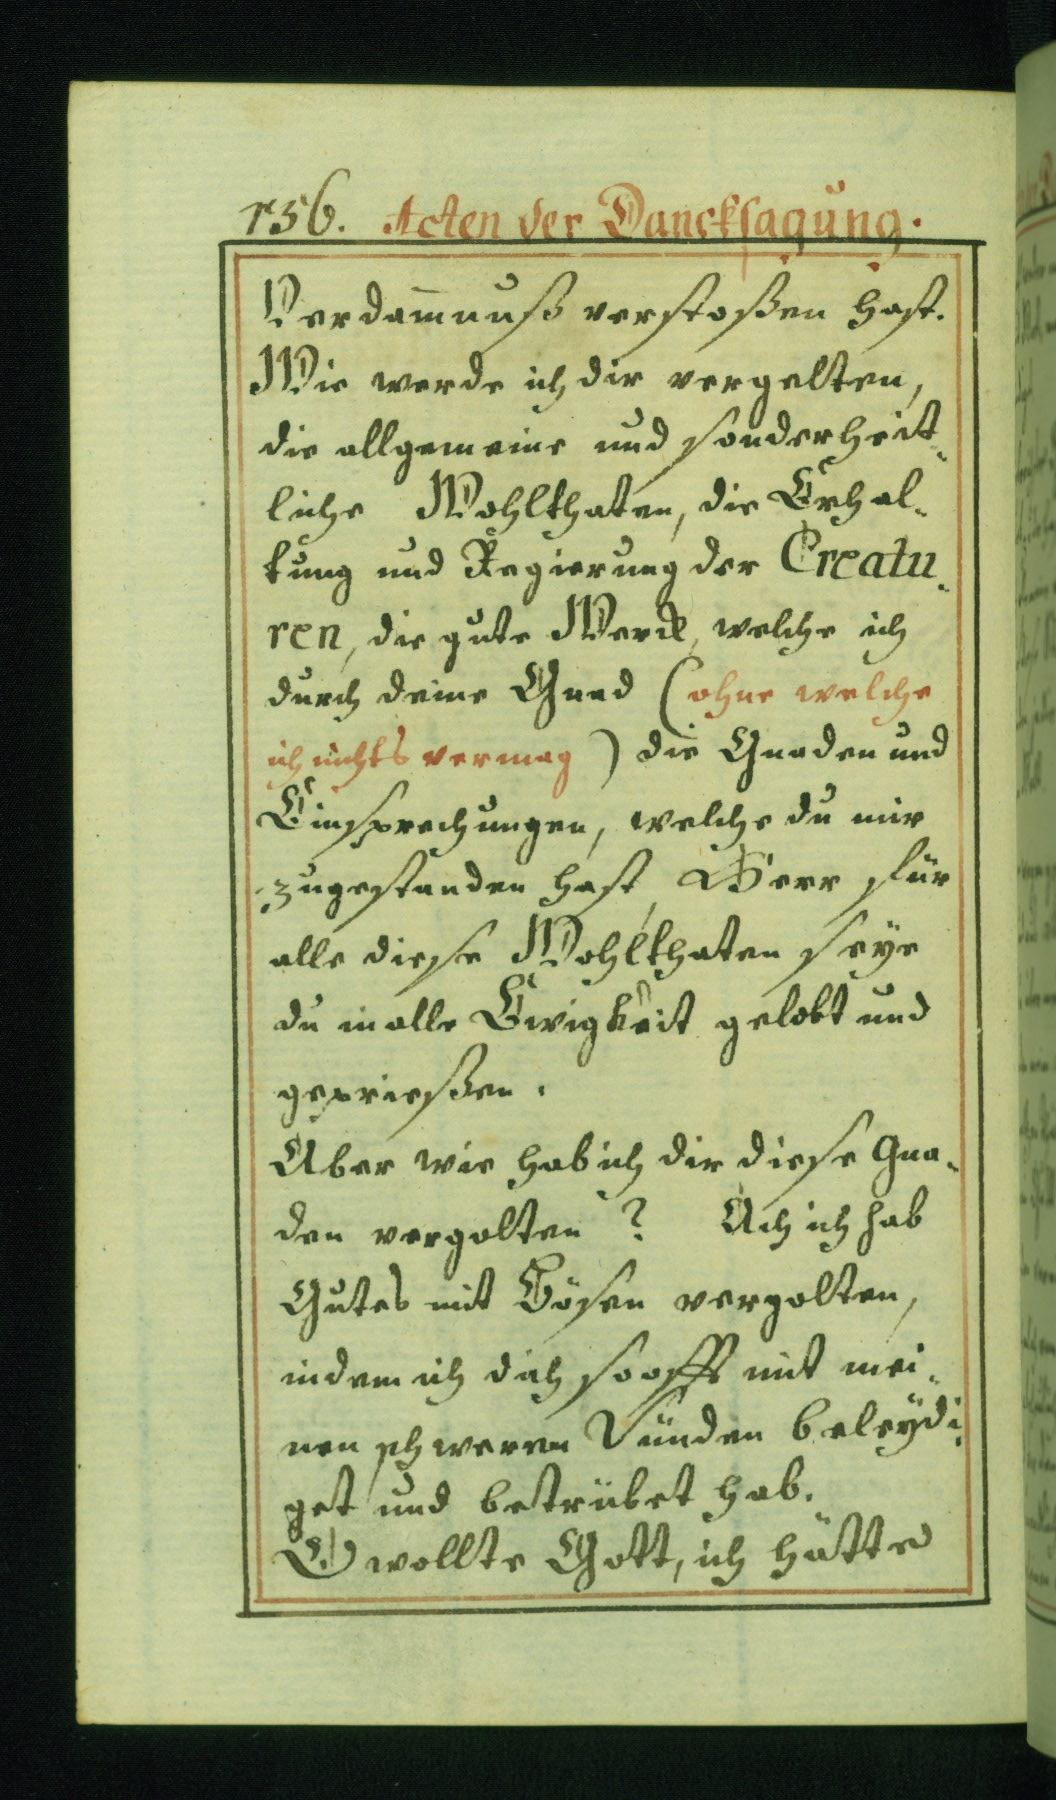 156. Acten der Dancksagung.
Verdam̅nuß verstoßen hast.
Wie werde ich dir vergelten,
die allgemeine und sonderheit-
liche Wohlthaten, die Erhal-
tung und Regierung der Creatu-
ren, die gute Werck, welche ich
durch deine Gnad (ohne welche
ich nichts vermag) die Gnaden und
Einsprechungen, welche du mir
zugestanden hast, O Herr für
alle diese Wohlthaten seye
du in alle Ewigkeit gelobt und
geprießen.
Aber wie hab ich dir diese Gna-
den vergolten? Ach ich hab
Gutes mit Bösen vergolten,
indem ich dich so offt mit mei-
nen schweren Sünden beleydi-
get und betrübet hab.
O wollte Gott, ich hätte